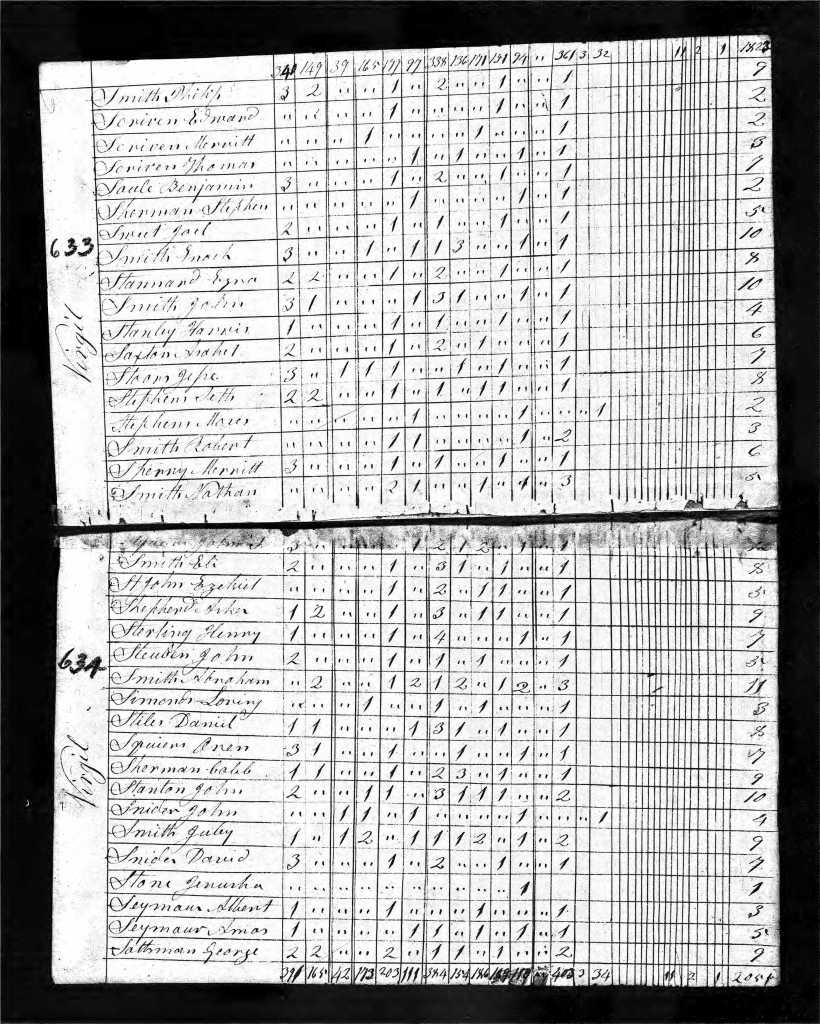 341 149 39 165 177 97 338 136 171 151 94 " 361 3 32 11 2 1 1823
Smith Philip 3 2 " " 1 " 2 " " 1 " " 1 9
Scriven Edward " " " " 1 " " " " 1 " " 1 2
Scriven Merritt " " " 1 " " " " 1 " " " 1 2
Scriven Thomas " " " " " 1 " 1 " " 1 " 1 3
Soule Benjamin 3 " " " 1 " 2 " " 1 " " 1 7
Sherman Stephen " " " " " 1 " " " " 1 " 1 2
Sweet Joel 2 " " " 1 " 1 " " 1 " " 1 5
633
Smith Enoch 3 " " 1 " 1 1 3 " " 1 " 1 10
Stannard Ezra 2 2 " " 1 " 2 " " 1 " " 1 8
Smith John 3 1 " " " 1 3 1 " " 1 " 1 10
Virgil
Stanley Harris 1 " " " 1 " 1 " " 1 " " 1 4
Saxton 2 " " " 1 " 2 " 1 " " " 1 6
3 " 1 1 1 " " 1 " 1 " " 1 7
Stephens Seth 2 2 " " 1 " 1 " 1 1 " " 1 8
Stephens Moses " " " " " 1 " " " " 1 " " " 1 2
Smith Robert " " " " 1 1 " " " " 1 " 2 3
Sherry Merritt 3 " " " 1 " 1 " " 1 " " 1 6
Smith Nathan " " " " 2 1 " " 1 " 1 " 3 5
3 " " " " 1 2 1 2 " 1 " 1
Smith Eli 2 " " " 1 " 3 1 " 1 " " 1 8
St John Ezekiel " " " " 1 " 2 " 1 1 " " 1 5
Shepherd 1 2 " " 1 " 3 " 1 1 " " 1 9
Sterling Henry 1 " " " 1 " 4 " " " 1 " 1 7
Steuben John 2 " " " 1 " 1 " 1 " " " 1 5
634
Smith Abraham " 2 " " 1 2 1 2 " 1 2 " 3 11
Simonds Loring " " " 1 " " 1 " 1 " " " 1 3
Stiles Daniel 1 1 " " " 1 3 1 " 1 " " 1 8
Virgil
Oren 3 1 " " 1 " " 1 " " 1 " 1 7
Sherman Caleb 1 1 " " 1 " 2 3 " 1 " " 1 9
Stanton John 2 " " 1 1 " 3 1 1 1 " " 2 10
Snider John " " 1 1 " 1 " " " " 1 " " " 1 4
Smith 1 " 1 2 " 1 1 1 2 " 1 " 2 9
Snider David 3 " " " 1 " 2 " " 1 " " 1 7
Stone Jerusha " " " " " " " " " " 1 1
Seymour Albert 1 " " " 1 " " " 1 " " " 1 3
Seymour Amos 1 " " " " 1 1 " 1 " 1 " 1 5
Sathman George 2 2 " " 2 " 1 1 " 1 " " 2 9
391 165 42 173 203 111 384 154 186 403 3 34 11 2 1